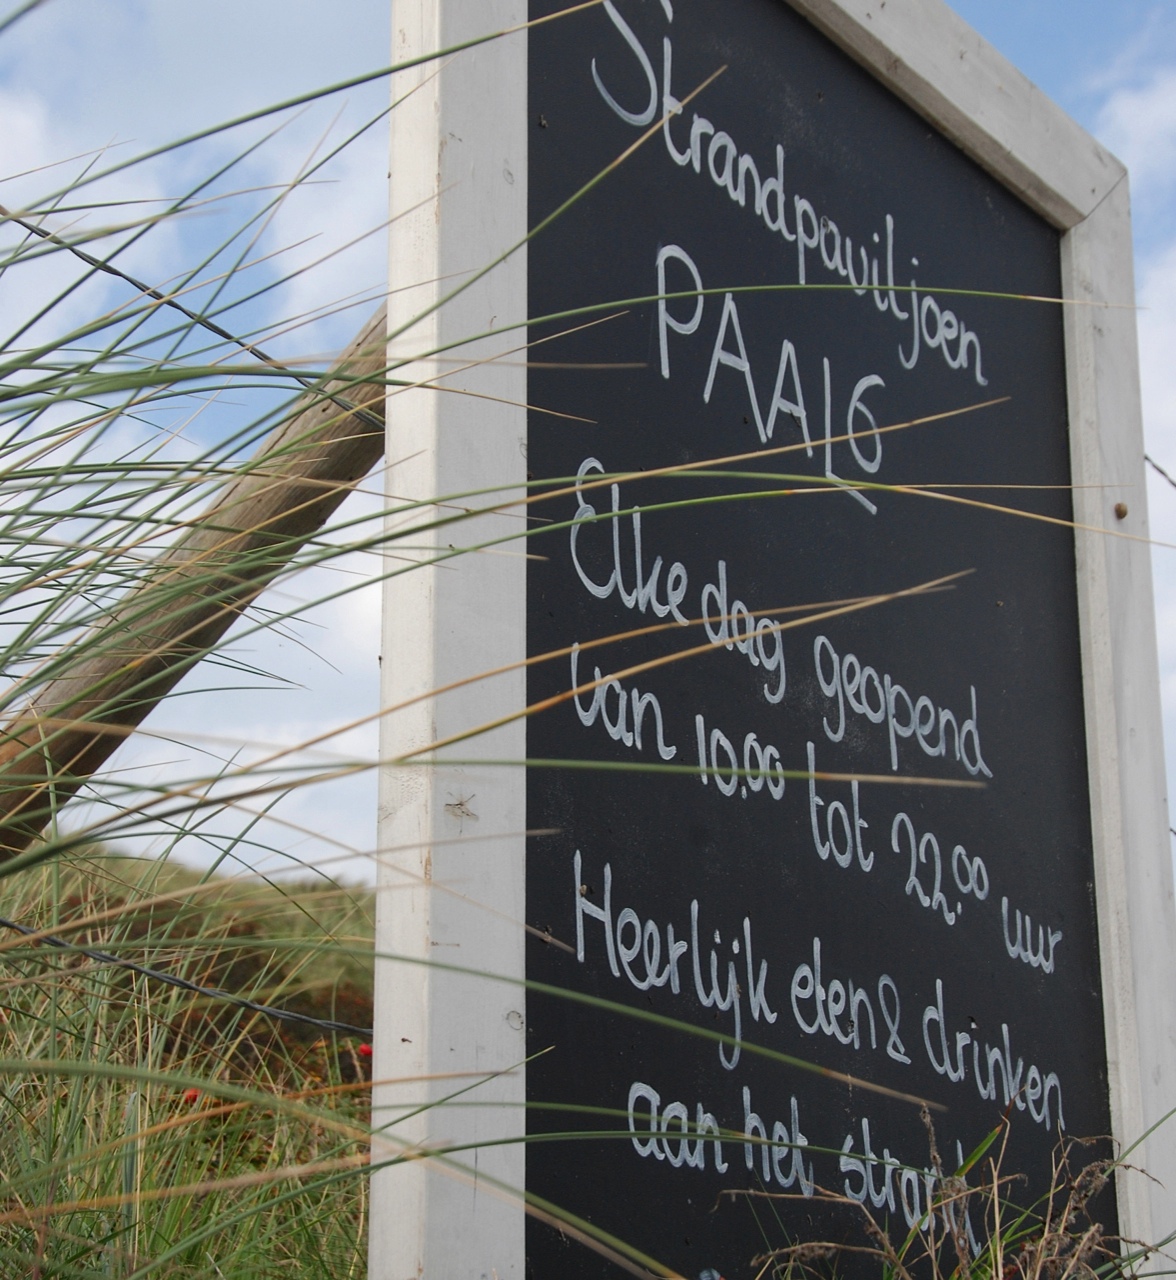 Strandpaviljoen
PAAL 6
Elke dag geopend
van 10.00 tot 22.00 uur
Heerlijk eten & drinken
aan het strand